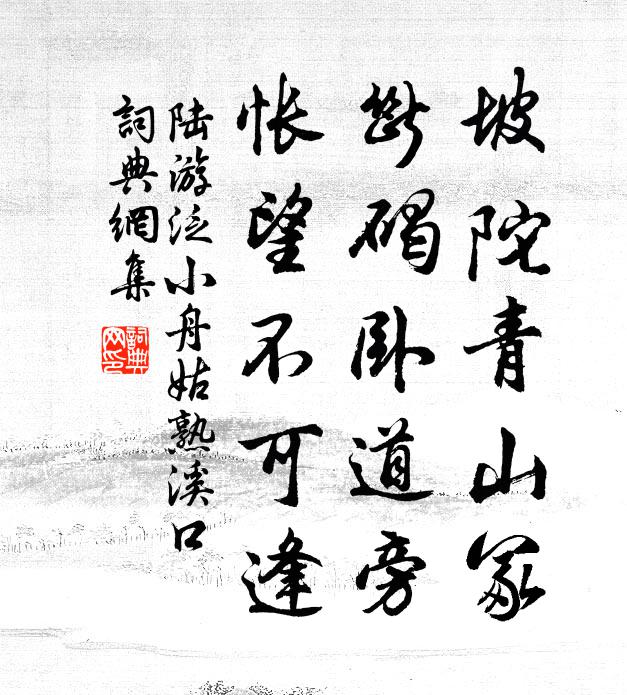 坡陀青山冢
断碣卧道旁
怅望不可逢
陆游泛小舟姑熟溪口
詞典網集
詞典网印